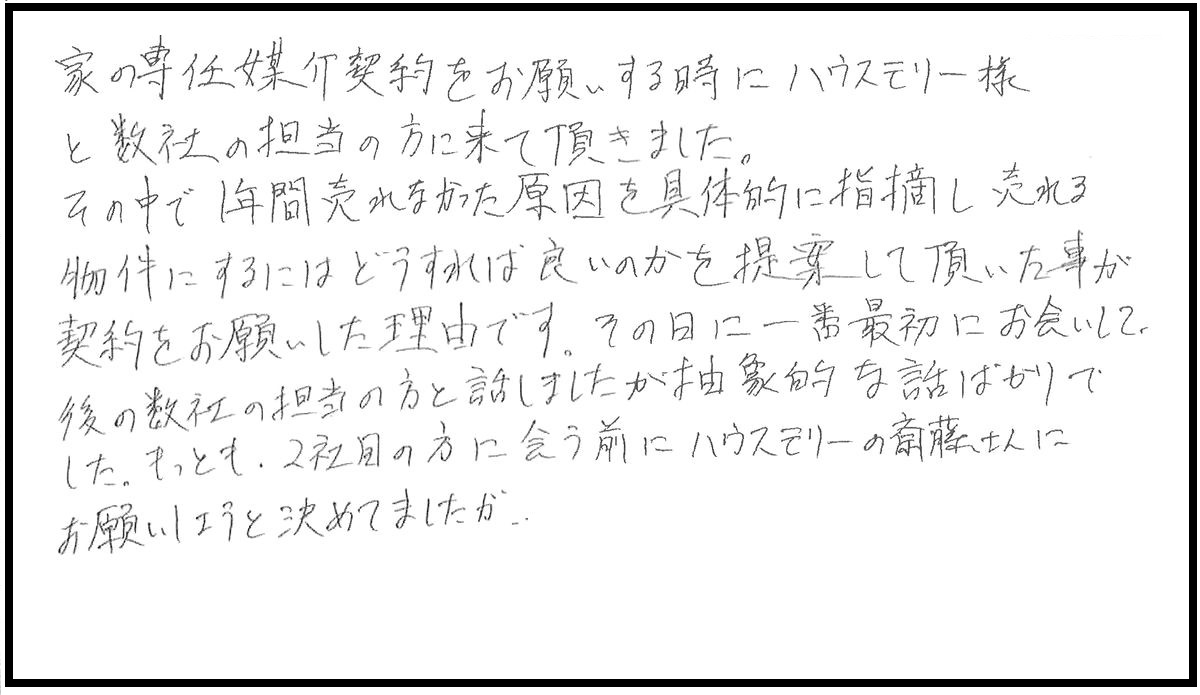 家の専任媒介契約をお願いする時にハウスモリー様
と数社の担当の方に来て頂きました。
その中で1年間売れなかった原因を具体的に指摘し売れる
物件にするにはどうすれば良いのかを提案して頂いた事が
契約をお願いした理由です。その日に一番最初にお会いして、
後の数社の担当の方と話しましたが抽象的な話ばかりで
した。もっとも、2社目の方に会う前にハウスモリーの斎藤さんに
お願いしようと決めてましたが…